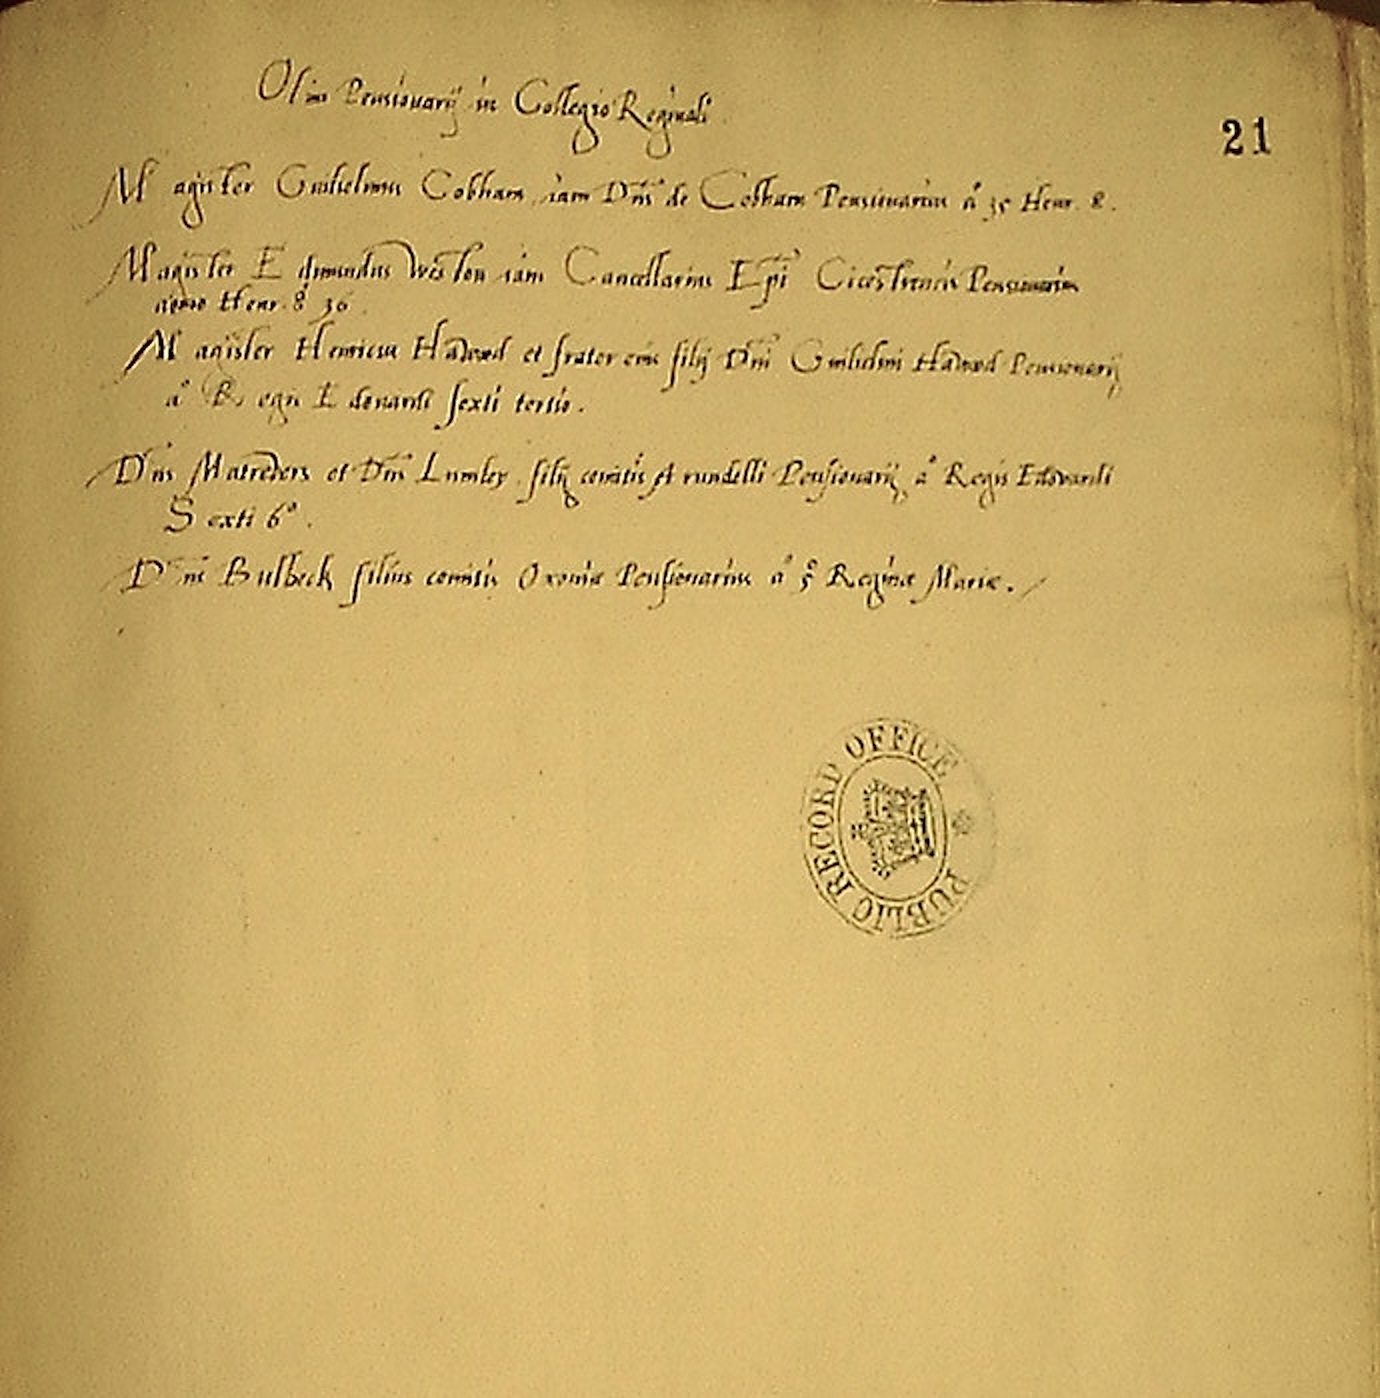 Olim Pensionarij in Collegio Reginali
21
Magister Guilielmus Cobham iam Dns de Cobham Pensionarius a° 35 Henr. 8.
Magister Edmundus Weston iam Cancellarius Epi Cicestrencis Pensionarius
anno Henr. 8 36.
Magister Henricus Haward et frater eius filij Dni Guilielmi Haward Pensionarij
a° Regis Edouardi sexti tertio.
Dns Matreders et Dns Lumley filij comitis Arundelli Pensionarij a° Regis Edovardi
Sexti 6°.
Dns Bulbeck filius comitis Oxoniæ Pensionarius a° 5° Reginæ Mariæ.
PUBLIC RECORD OFFICE